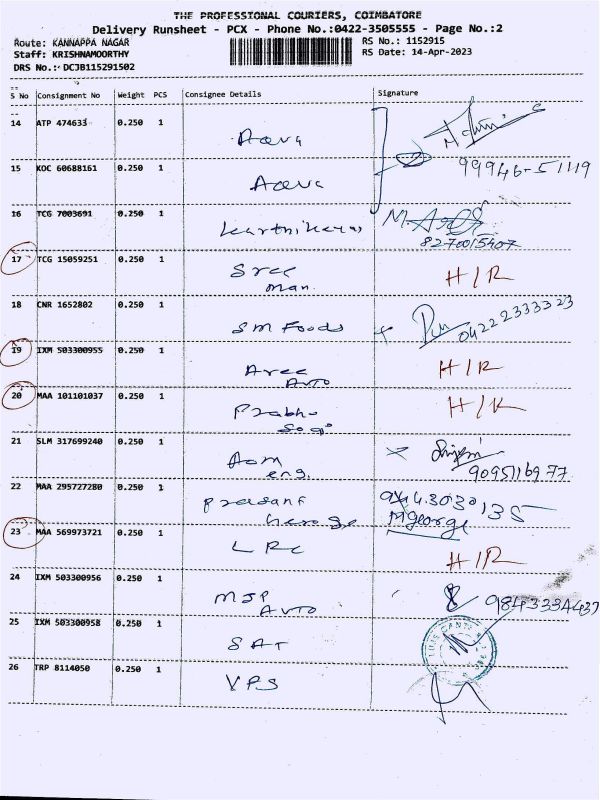 THE PROFESSIONAL COURIERS, COIMBATORE
Delivery Runsheet - PCX - Phone No.:0422-3505555 - Page No.:2
Route: KANNAPPA NAGAR RS No.: 1152915
Staff: KRISHNAMOORTHY RS Date: 14-Apr-2023
DRS No.: DCJB115291502
S No Consignment No Weight PCS Consignee Details Signature
14 ATP 474633 0.250 1
99946-51119
15 KOC 60688161 0.250 1
16 TCG 7003691 0.250 1
8270015407
17 TCG 15059251 0.250 1 Sree H/R
man.
18 CNR 1652802 0.250 1 SM Foods 04222333323
19 IXM 503300955 0.250 1 H/R
AUTO
20 MAA 101101037 0.250 1 Prabhu H/R
21 SLM 317699240 0.250 1
eng. 9095116977
22 MAA 295727280 0.250 1 9443030135
George
23 MAA 569973721 0.250 1 LRC H/R
24 IXM 503300956 0.250 1 MJP 9843334437
AUTO
25 IXM 503300958 0.250 1 SAT
26 TRP 8114050 0.250 1 VPS